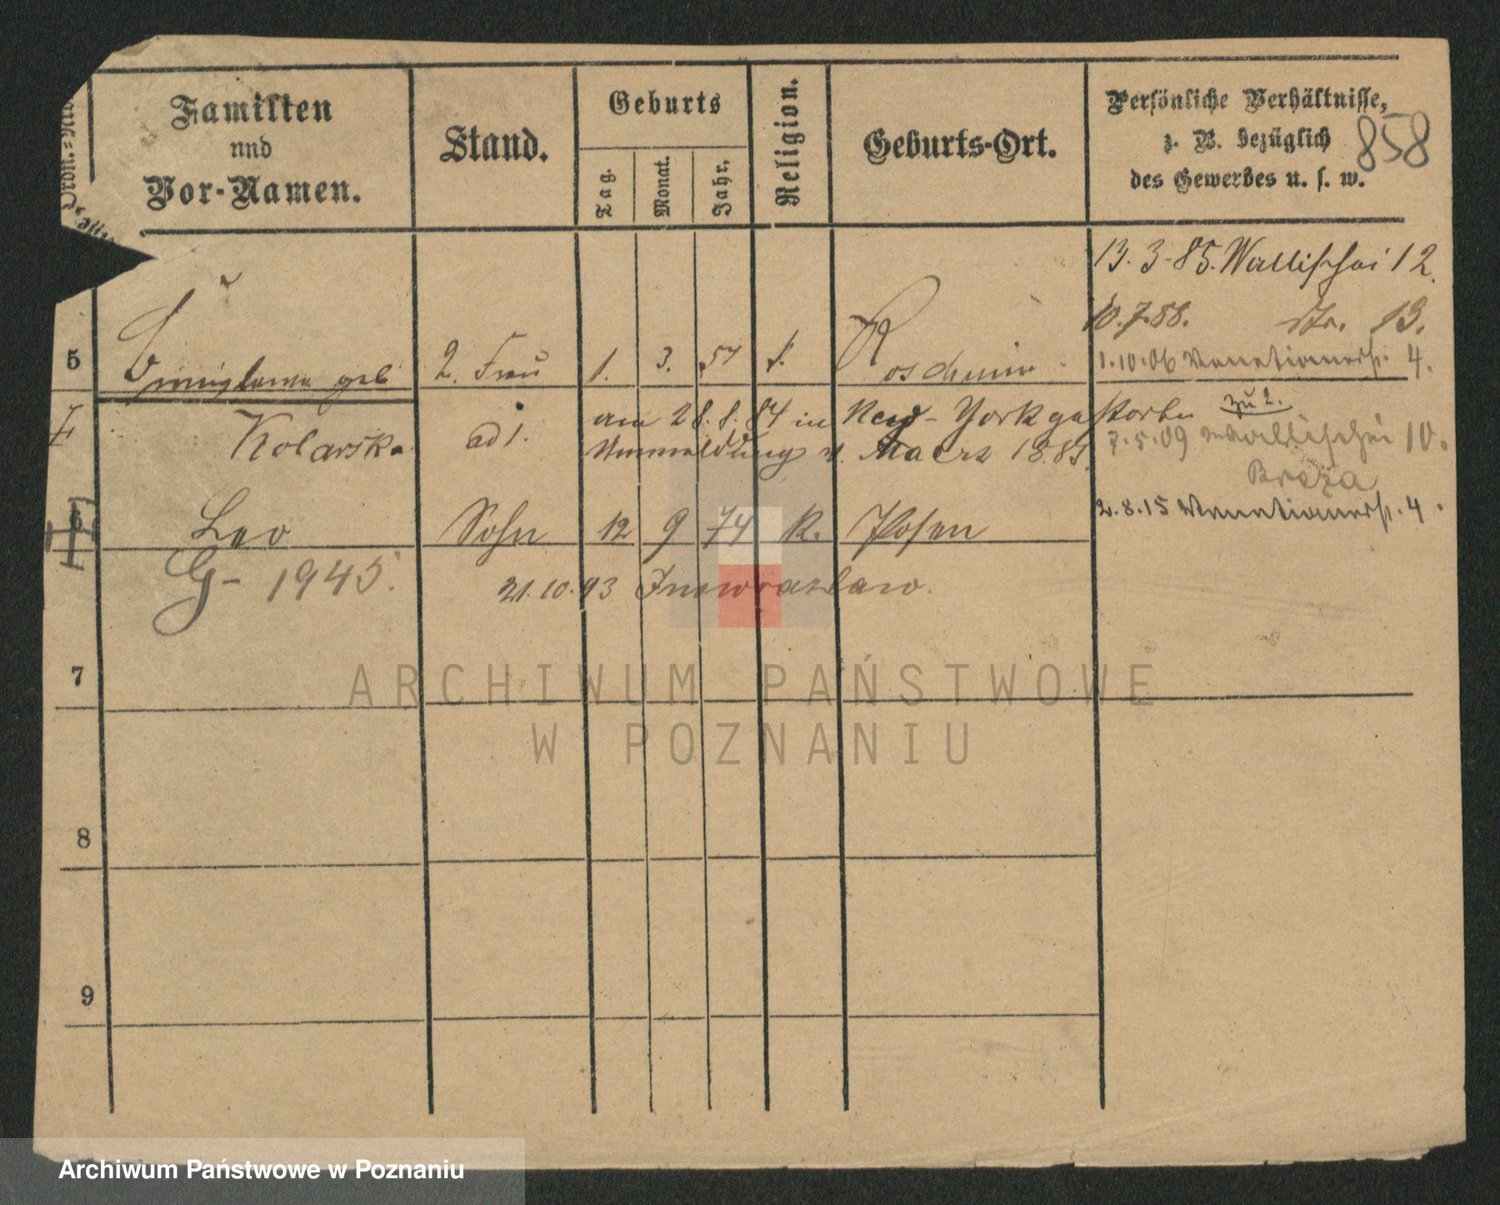 Familien
und
Vor-Namen.
Stand.
Geburts
Tag.
Monat.
Jahr.
Religion.
Geburts-Ort.
Persönliche Verhältnisse,
z. B. bezüglich
des Gewerbes u. s. w.
858
13. 3. 85. Wallischei 12.
10. 7. 88. str. 13.
5 geb 2. Frau 1. 3. 57
1. 10. 06 Venetianerstr. 4.
Kolarska ad 1. am 28. 8. 84 in New-York gestorben zu 2.
7. 5. 09 Wallischei 10.
v. Maerz 1885.
Breza
Leo Sohn 12 9 74 K. Posen
2. 8. 15 Venetianerstr. 4.
G- 1945. 21. 10. 93 Inowrazlaw.
7
8
9
ARCHIWUM PAŃSTWOWE
W POZNANIU
Archiwum Państwowe w Poznaniu